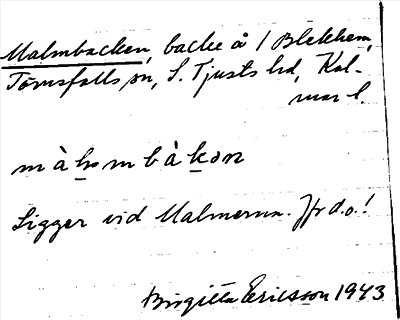 Malmbacken, backe å 1 Blekhem,
Törnsfalls sn, S. Tjusts hd, Kal-
mar l.
Ligger vid Malmerna. Jfr d.o.!
Birgitta Ericsson 1943